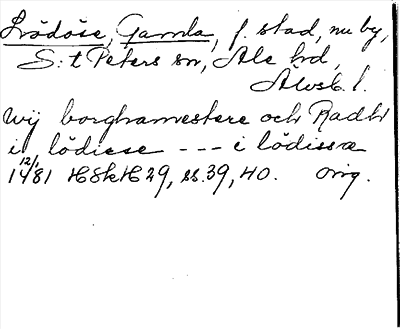 Lödöse, Gamla, f. stad, nu by,
S:t Peters sn, Ale hd,
Älvsb. l.
wij borghamestere och Radh
i lödiese --- i lödissæ
12/1 1481 HSH 29, ss. 39, 40. orig.